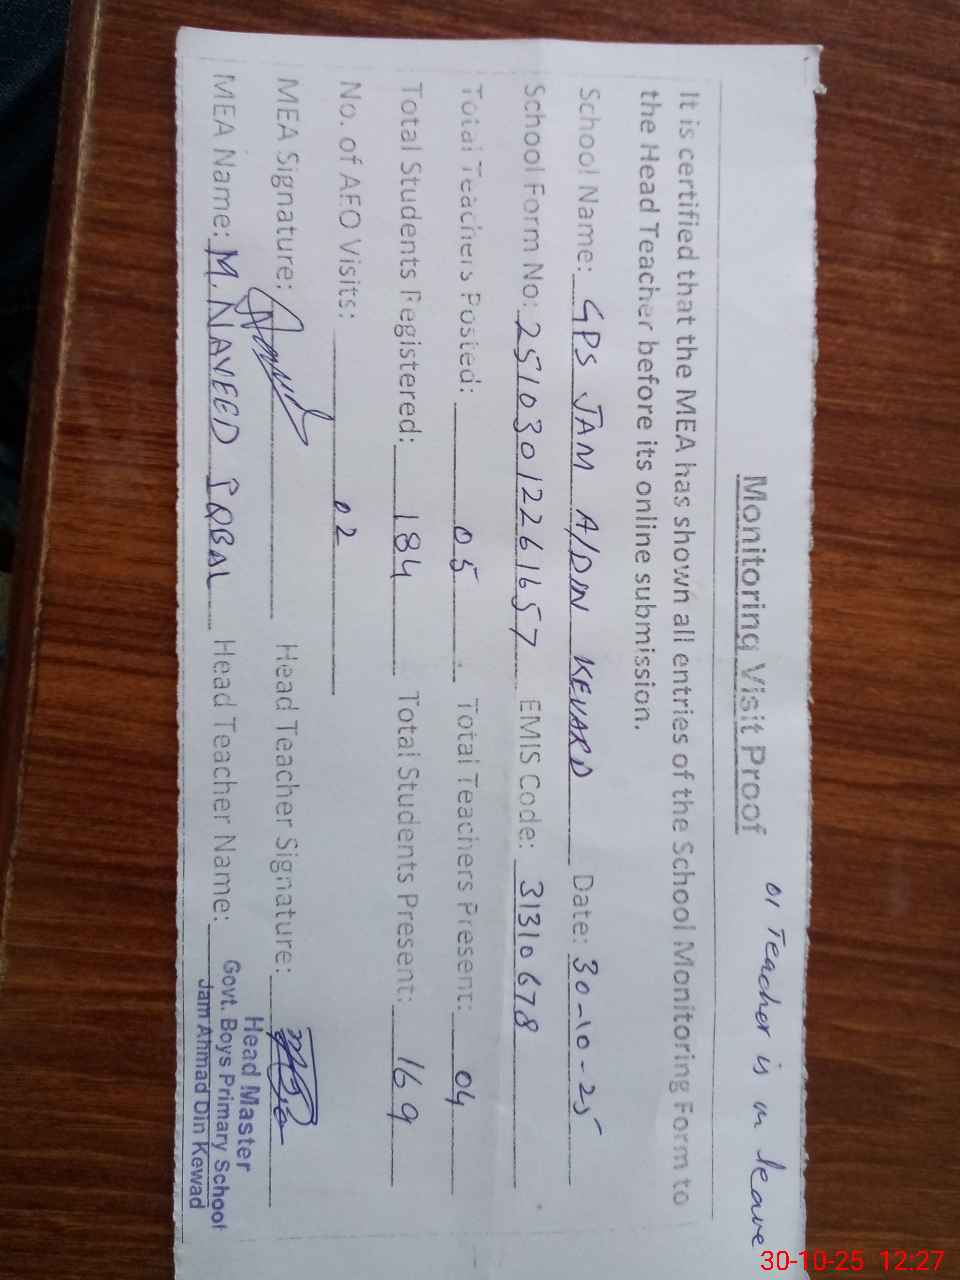 Monitoring Visit Proof
01 Teacher is on leave
It is certified that the MEA has shown all entries of the School Monitoring Form to
the Head Teacher before its online submission.
School Name: GPS JAM A/DIN KEWARD Date: 30-10-25
School Form No: 25103012261657 EMIS Code: 31310678
Total Teachers Posted: 05 Total Teachers Present: 04
Total Students Registered: 184 Total Students Present: 169
No. of AEO Visits: 02
MEA Signature: Head Teacher Signature:
MEA Name: M. NAVEED IQBAL Head Teacher Name:
Head Master
Govt. Boys Primary School
Jam Ahmad Din Kewad
30-10-25 12:27